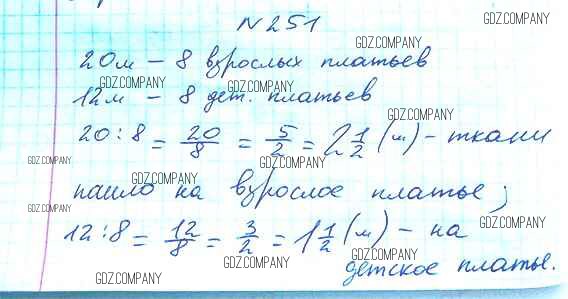 N 251
GDZ.COMPANY
GDZ.COMPANY
20м – 8 взрослых платьев
GDZ.COMPANY
GDZ.COMPANY
12м – 8 дет. платьев
GDZ.COMPANY
20 : 8 = 20/8 = 5/2 = 2 1/2 (м) – ткани
GDZ.COMPANY
GDZ.COMPANY
GDZ.COMPANY
пошло на взрослое платье;
GDZ.COMPANY
GDZ.COMPANY
12 : 8 = 12/8 = 3/2 = 1 1/2 (м) – на
GDZ.COMPANY
GDZ.COMPANY
детское платье.
GDZ.COMPANY